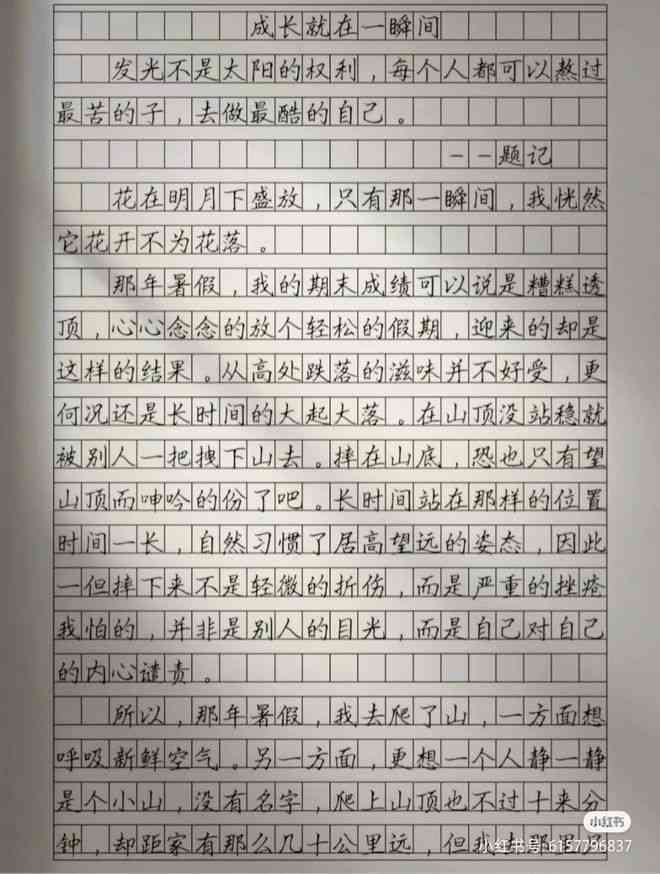 成长就在一瞬间
发光不是太阳的权利，每个人都可以熬过
最苦的子，去做最酷的自己。
——题记
花在明月下盛放，只有那一瞬间，我恍然
它花开不为花落。
那年暑假，我的期末成绩可以说是糟糕透
顶，心心念念的放个轻松的假期，迎来的却是
这样的结果。从高处跌落的滋味并不好受，更
何况还是长时间的大起大落。在山顶没站稳就
被别人一把拽下山去。摔在山底，恐也只有望
山顶而呻吟的份了吧。长时间站在那样的位置
时间一长，自然习惯了居高望远的姿态，因此
一但摔下来不是轻微的折伤，而是严重的挫疮
我怕的，并非是别人的目光，而是自己对自己
的内心谴责。
所以，那年暑假，我去爬了山，一方面想
呼吸新鲜空气。另一方面，更想一个人静一静
是个小山，没有名字，爬上山顶也不过十来分
钟，却距家有那么几十公里远，但我去那里
小红书
小红书号:6157796837